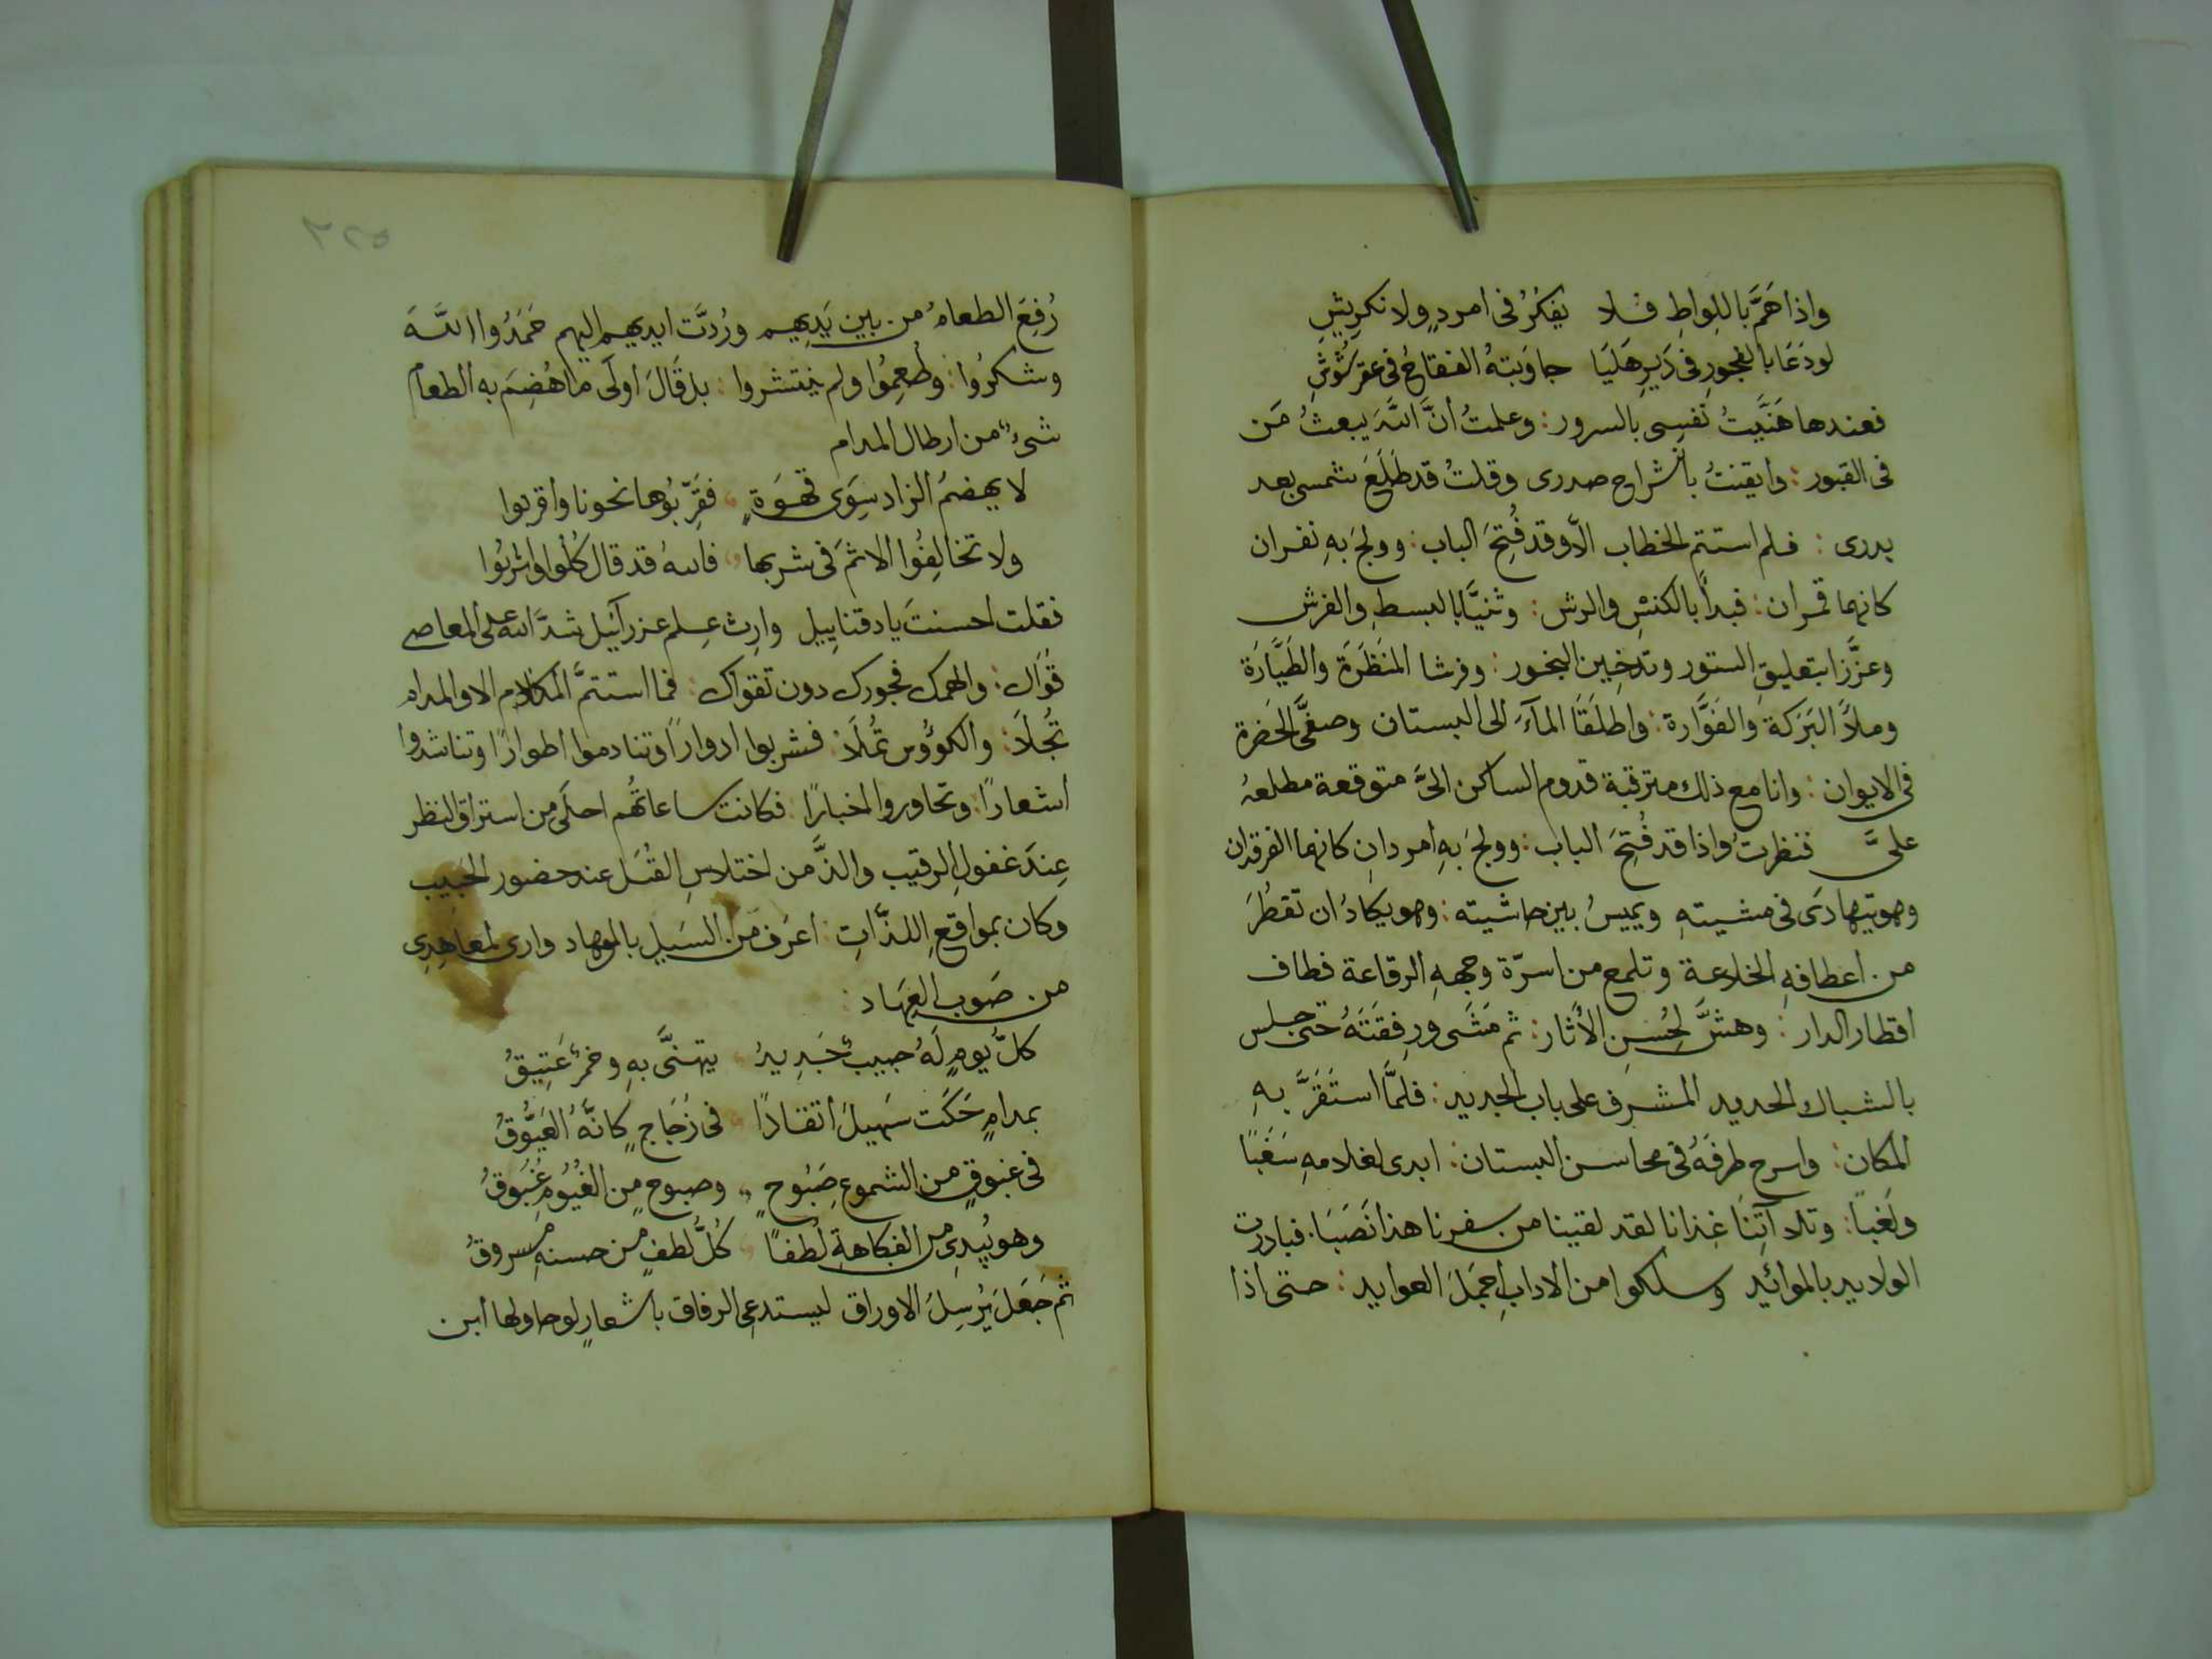 واذا هَمَّ باللِواطِ فلا يفكرُ فى امردٍ ولا نكرِيشِ
لو دَعَا بالفجورِ فى دَيرِ هَليَا جاوَبتهُ الفقاحُ فى عقر شُوشِ
فعندها هَنَّيتُ نفسِى بالسرور : وعلمتُ أنَّ اللَّهَ يبعثُ مَن
فى القبور : وايقنتُ بانشراح صدرى وقلتُ قد طَلَعَ شمسى بعد
بدرى : فلم استتم الخطاب الَّا وقد فُتِحَ الباب : وولجَ بهِ نفران
كانهما قمران : فبدأَا بالكنسِ والرش : وثنيَّا بالبسطِ والفرش
وعزَّزا بتعليقِ الستور وتدخِين البخور : وفرشا المَنظَرَة والطَيَّارَة
وملأَا البَرَكة والفَوَّارة : واطلَقَا المآءَ الى البستان وصفَّى الحَضرة
فى الايوان : وانا مع ذلك مترقبة قدوم الساكن الىَّ متوقعة مطلعهُ
علىَّ فنظرتُ واذا قد فُتِحَ الباب : وولجَ بهِ امردانِ كانهما الفرقدان
وهو يتهادَى فى مشيتهِ ويميسُ بين حاشيته : وهو يكادُ ان تقطُرَ
من اعطافهِ الخلاعة وتلمع من اسرّة وجههِ الرقاعة فطاف
اقطار الدار : وهشَّ لِحُسنِ الأثار : ثم مَشَى ورفِقَتَهُ حتى جلس
بالشباك الحديد المشرِف على باب الجديد : فلمَّا استَقَرَّ بهِ
المكان : واسرح طرفَهُ فى محاسن البستان : ابدى لغلامهِ سَغَبًا
ولَغبًا : وتلا آتِنَا غِذانا لقد لقينا من سفرنا هذا نَصَبَا : فبادرت
الولاييد بالموائيد وسلكوا من الادابِ اجمَلَ العوايد : حتى اذا
٢٢٥
رُفِعَ الطعامُ من بين يَدِيهِم ورُدَّت ايديهم اليهم حَمَدُوا اللَّهَ
وشكرُوا : وطُعِمُوا ولم ينتشروا : بل قَالَ اولَى ما هُضِمَ به الطعام
شىءٌ من ارطال المدام
لا يهضمُ الزاد سِوَى قهوَةٍ فقَرِّبُوها نحونا واقربوا
ولا تخالِفُوا الاثمَ فى شربها فاللهُ قد قال كُلُوا واشربُوا
فقلت احسنتَ يا دقنايِيل وارِث عِلم عزرآئيل شدَّ الله على المعاصى
قُوَاك : والهمك فجورك دون تقواك : فما استتمَّ الكلام الا والمدام
تُجلَا : والكوؤس تُملَا : فشربوا ادوارًا وتنادموا اطوارًا وتناشدوا
اشعارًا : وتحاوروا اخبارًا : فكانت ساعاتُهُم احلَى من استراق النظر
عِندَ غفولِ الرقيب والذَّ من اختلاسِ القُبَل عند حضور الحبيب
وكان بمواقعِ اللذَّاتِ : اعرَف من السَيلِ بالوهاد وارى لمعاهِدِى
من صَوبِ العِهَاد :
كلَّ يومٍ لَهُ حبيبٌ جَدِيدُ يتهنَّى بهِ وخمرٌ عَتِيقُ
بمدامٍ حَكَت سَهيلَ اتقادًا فى زُجَاجٍ كانَّهُ العَيُّوقُ
فى غبُوقٍ من الشموعِ صَبُوحٍ وصبوحٍ من الغُيُومِ غُبُوقُ
وهو يُبدِى من الفكاهةِ لُطفًا كُلُّ لُطفٍ من حسنهِ مسروقُ
ثم جَعَلَ يُرسِلَ الاوراق ليستدعى الرفاق باشعارٍ لو حاولها ابن